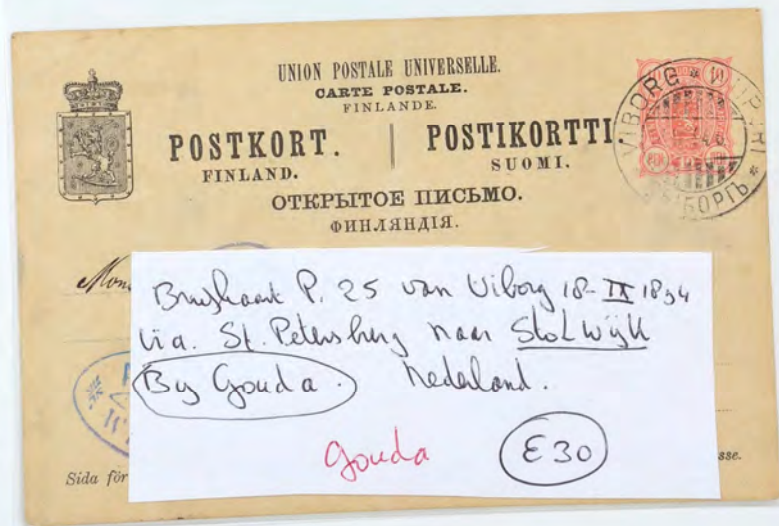 UNION POSTALE UNIVERSELLE.
CARTE POSTALE.
FINLANDE.
POSTKORT. | POSTIKORTTI
FINLAND. SUOMI.
ОТКРЫТОЕ ПИСЬМО.
ФИНЛЯНДІЯ.
VIBORG
10
Mon
Briefkaart P. 25 van Viborg 18-IX 1894
via. St. Petersburg naar Stolwijk
By Gouda. Nederland.
Gouda
E30
Sida för
sse.